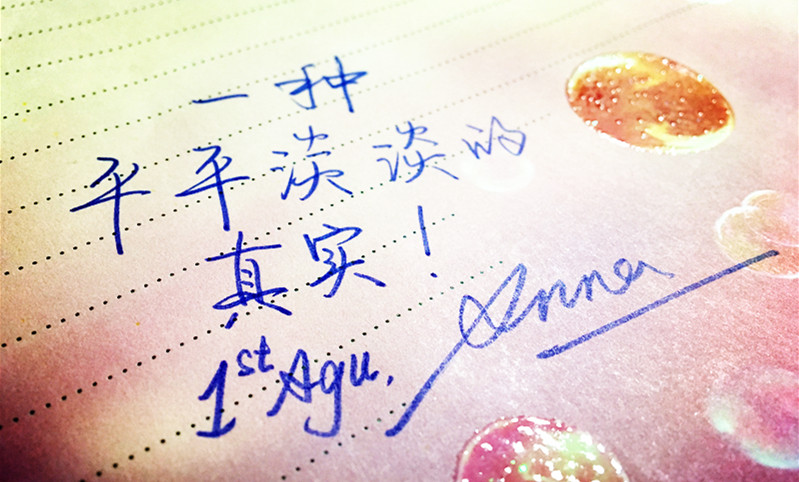 一种
平平淡淡的
真实！
1st Agu.
Anna